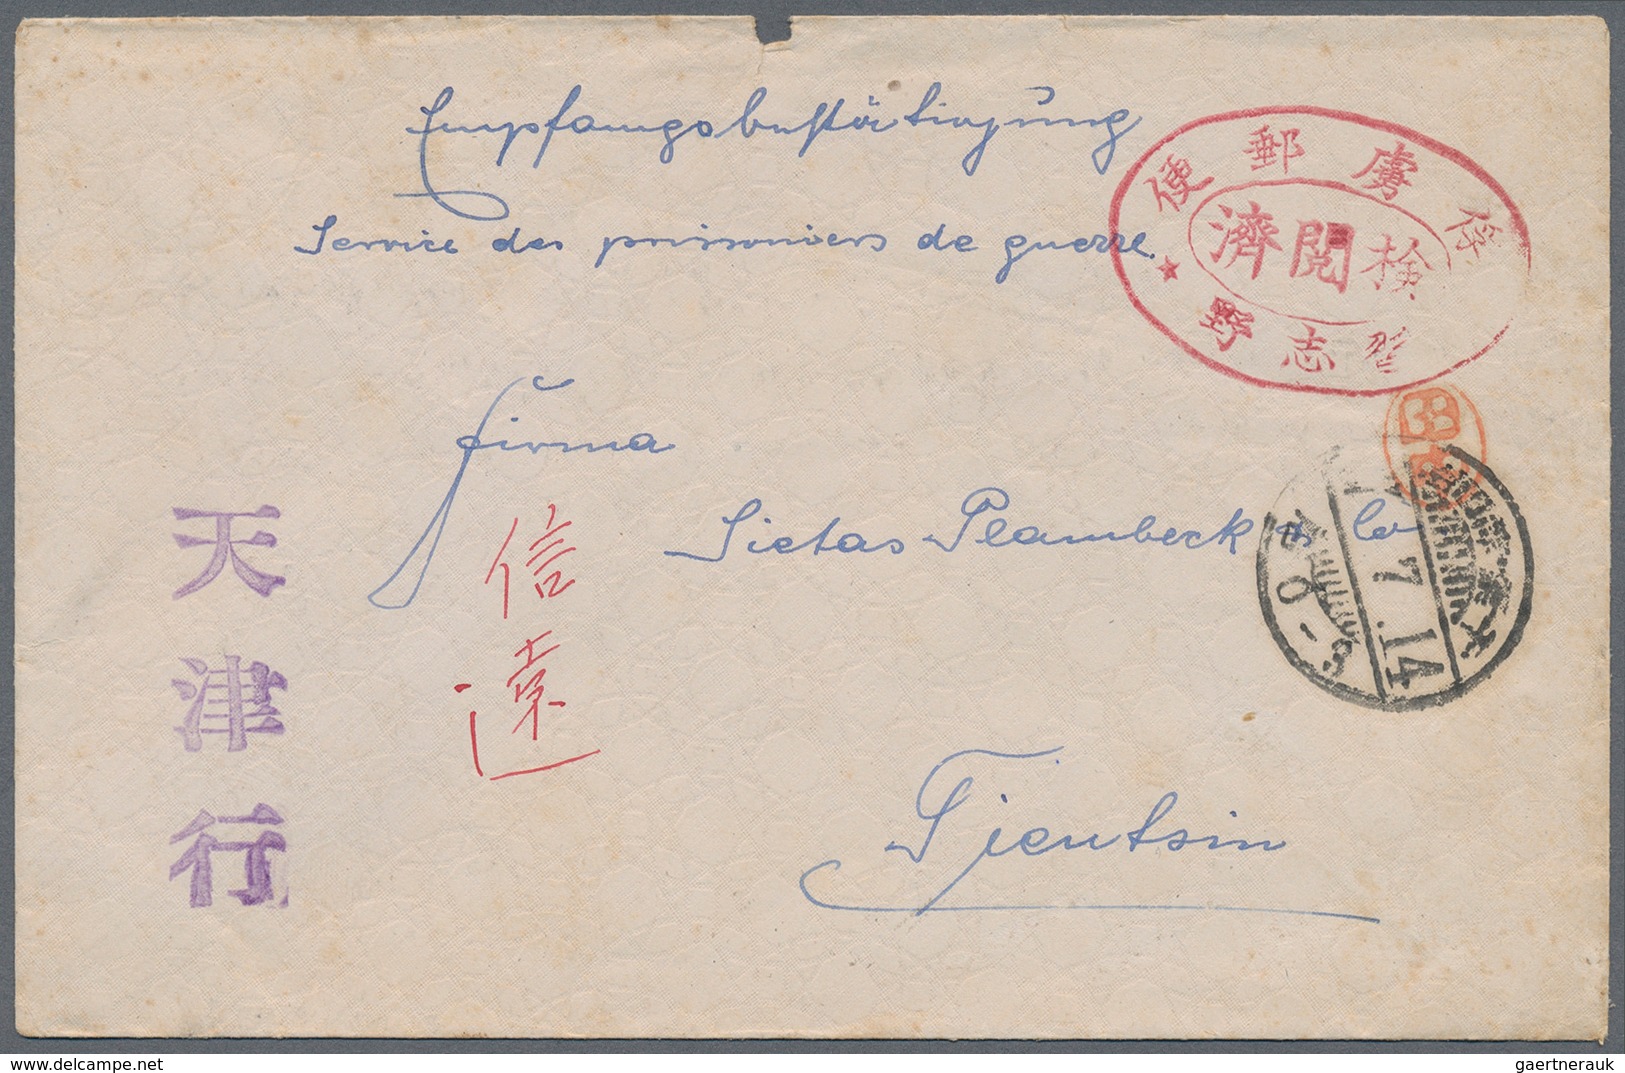 Empfangsbestätigung
Service des prisonniers de guerre.
俘虜郵便
検閲済
習志野
Firma
Sietas Plambeck & Co
Tientsin
信遠
天津行
7.1.14
delcampe.net
gaertnerauk